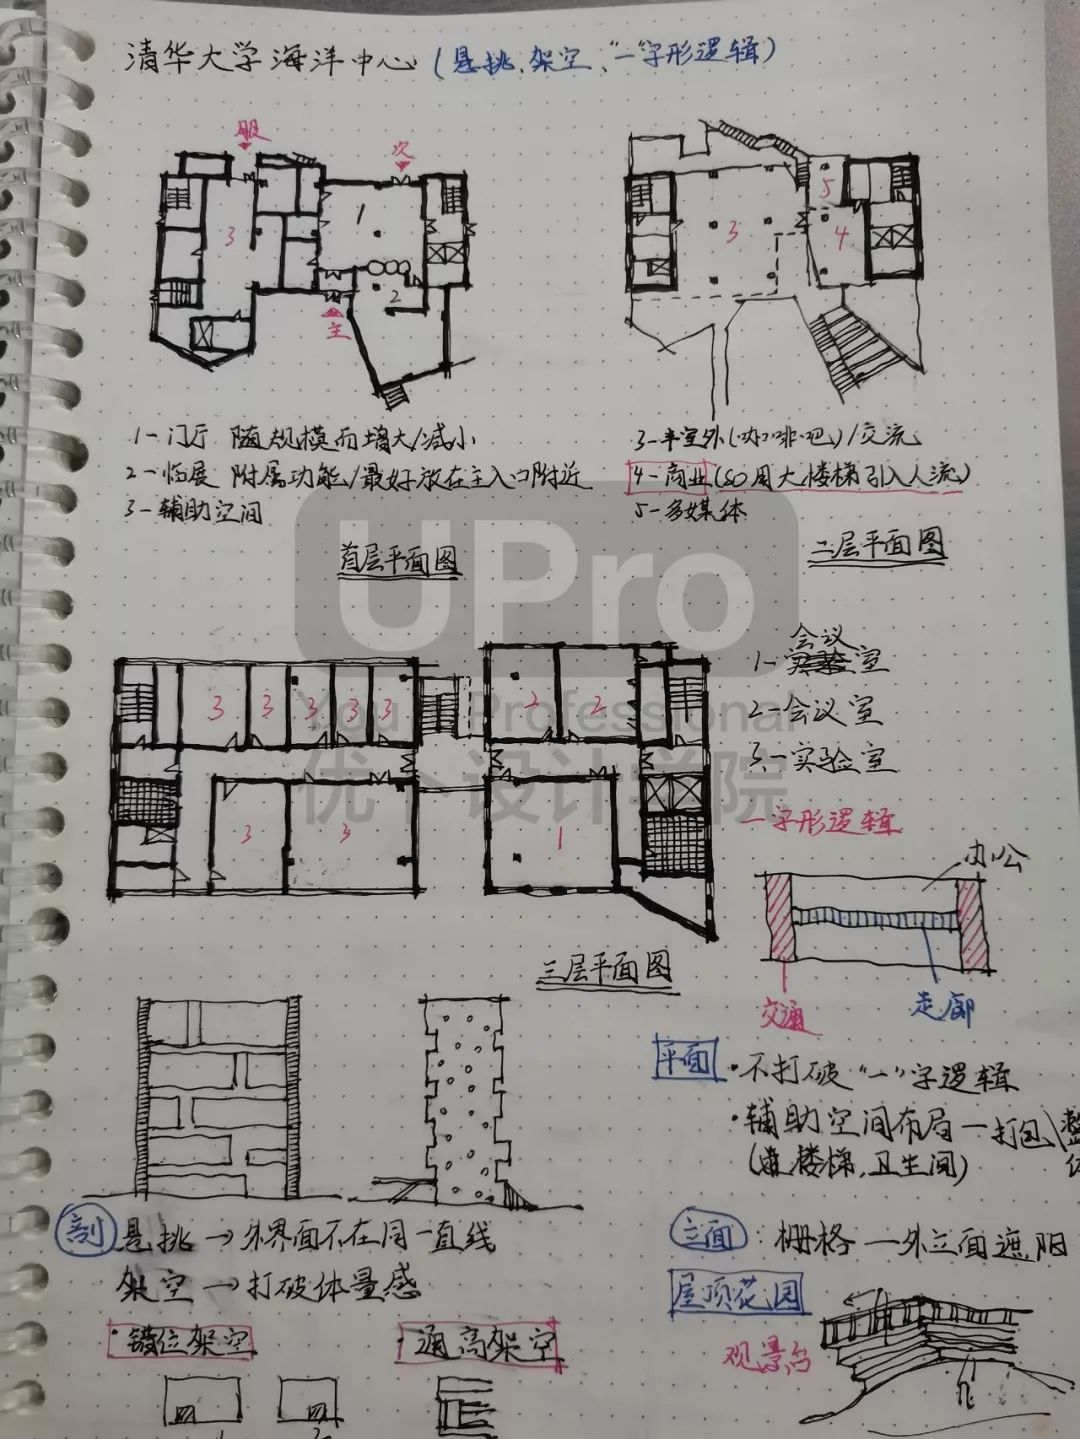 清华大学海洋中心(悬挑、架空、"一"字形逻辑)
服
次
3
1
2
主
5
3
4
1-门厅 随规模而增大/减小
2-临展 附属功能/最好放在主入口附近
3-辅助空间
首层平面图
3-半室外(咖啡吧)/交流
4-商业(so用大楼梯引入人流)
5-多媒体
二层平面图
3 3 3 3 3 2 2
3 3 1
会议
1-室
2-会议室
3-实验室
三层平面图
一字形逻辑
办公
交通
走廊
平面
·不打破"一"字逻辑
·辅助空间布局一打包\整
(楼梯,卫生间)
剖 悬挑→外界面不在同一直线
架空→打破体量感
·错位架空
·通高架空
立面:栅格—外立面遮阳
屋顶花园
观景台
UPro
Your Professional
优个设计学院